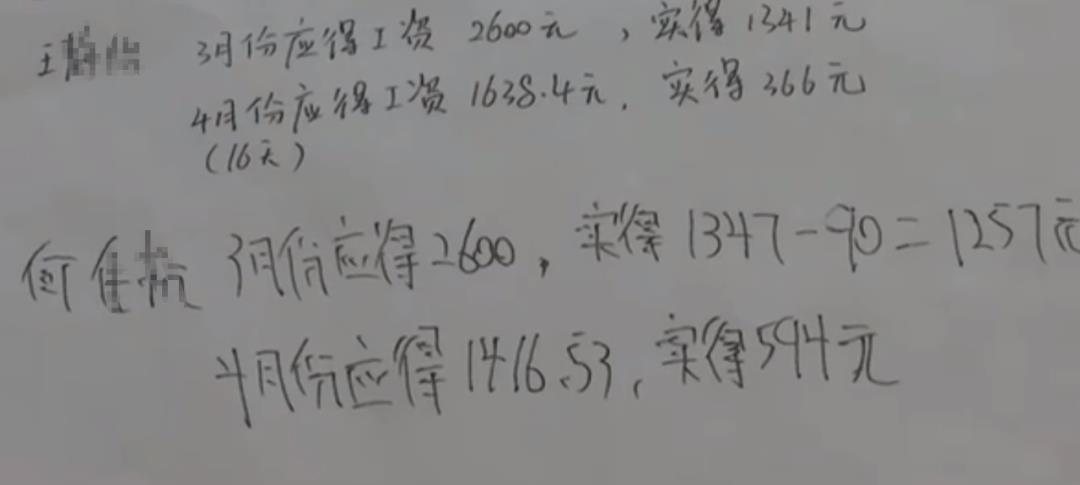 王 3月份应得工资 2600元，实得1341元
4月份应得工资1638.4元．实得366元
(16天)
何佳 3月份应得2600，实得1347-90=1257元
4月份应得1416.53，实得594元